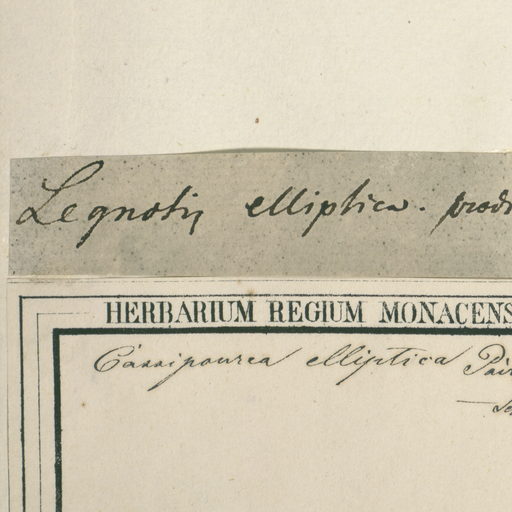 Legnotis elliptica. prodr
HERBARIUM REGIUM MONACENS
Cassipourea elliptica Poir